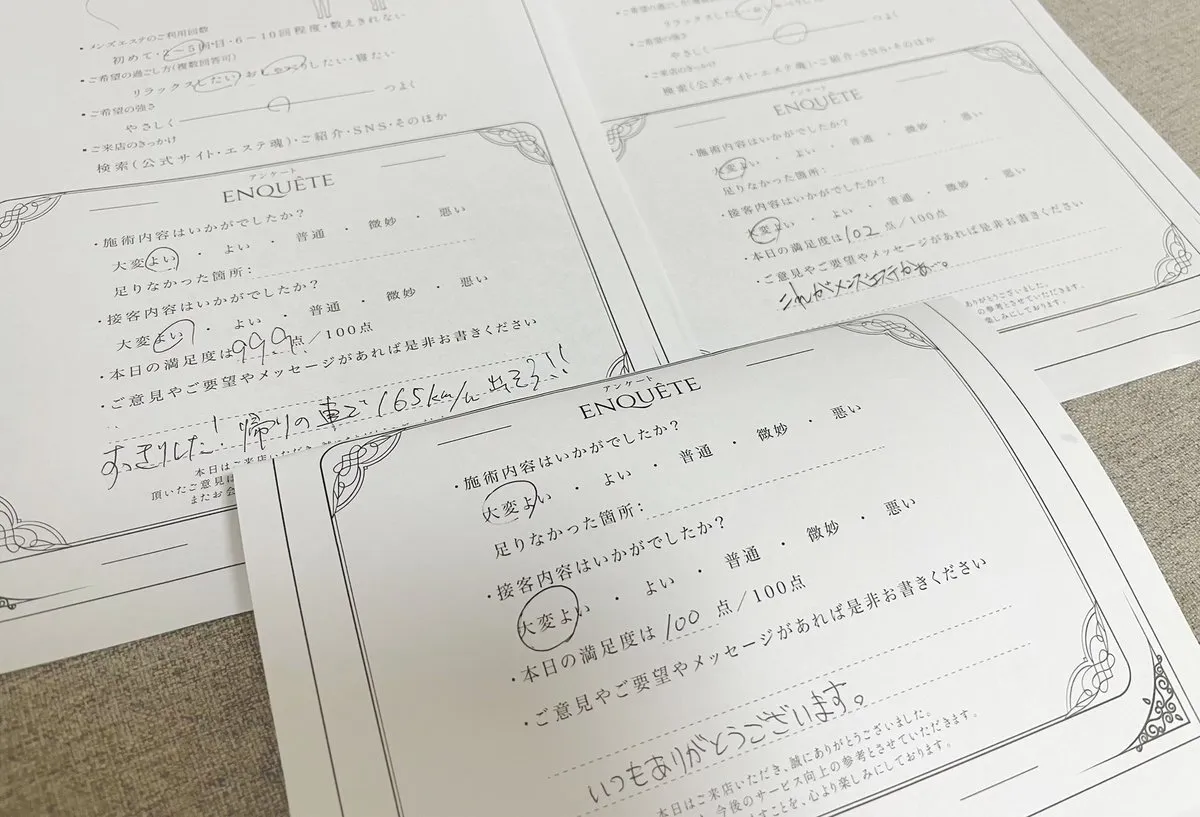 ・メンズエステのご利用回数
初めて・2〜5回目・6−10回程度・数えきれない
・ご希望の過ごし方(複数回答可)
リラックスしたい・おしゃべりしたい・寝たい
・ご希望の強さ
やさしく つよく
・ご来店のきっかけ
検索(公式サイト・エステ魂)・ご紹介・SNS・そのほか
アンケート
ENQUÊTE
・施術内容はいかがでしたか?
大変よい ・ よい ・ 普通 ・ 微妙 ・ 悪い
足りなかった箇所:
・接客内容はいかがでしたか?
大変よい ・ よい ・ 普通 ・ 微妙 ・ 悪い
・本日の満足度は999点/100点
・ご意見やご要望やメッセージがあれば是非お書きください
すっきりした!帰りの車で165km/h出そう!!
本日はご来店いただき
頂いたご意見は
またお会
リラックスしたい
・ご希望の強さ
やさしく つよく
・ご来店のきっかけ
検索(公式サイト・エステ魂)・ご紹介・SNS・そのほか
アンケート
ENQUÊTE
・施術内容はいかがでしたか?
大変よい ・ よい ・ 普通 ・ 微妙 ・ 悪い
足りなかった箇所:
・接客内容はいかがでしたか?
大変よい ・ よい ・ 普通 ・ 微妙 ・ 悪い
・本日の満足度は102点/100点
・ご意見やご要望やメッセージがあれば是非お書きください
これがメンズエステかぁ〜。
ありがとうございました。
の参考とさせていただきます。
楽しみにしております。
アンケート
ENQUÊTE
・施術内容はいかがでしたか?
大変よい ・ よい ・ 普通 ・ 微妙 ・ 悪い
足りなかった箇所:
・接客内容はいかがでしたか?
大変よい ・ よい ・ 普通 ・ 微妙 ・ 悪い
・本日の満足度は100点/100点
・ご意見やご要望やメッセージがあれば是非お書きください
いつもありがとうございます。
本日はご来店いただき、誠にありがとうございました。
今後のサービス向上の参考とさせていただきます。
すことを、心より楽しみにしております。